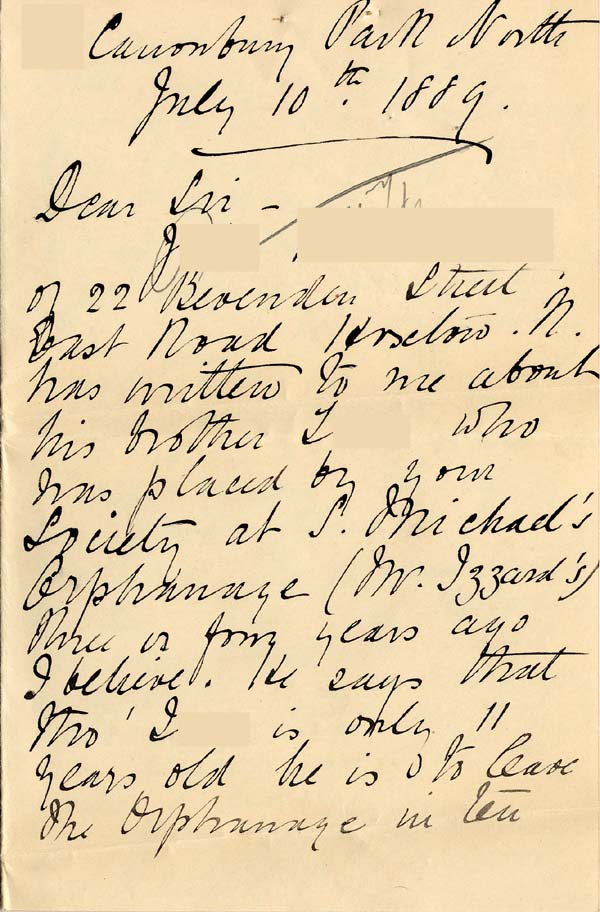 Canonbury Park North
July 10th. 1889.
Dear Sir -
J
of 22 Bevenden Street.
East Road Hoxton. N.
has written to me about
his brother I who
was placed by your
Society at S. Michael's
Orphanage (Mr. Izzard's)
three or four years ago
I believe. He says that
tho' I is only 11
years old he is to leave
the Orphanage in ten